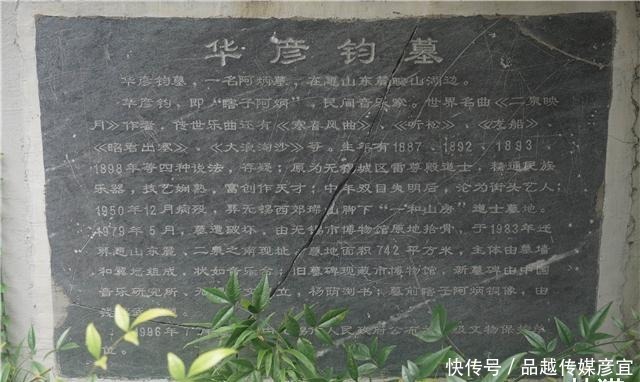 华彦钧墓
华彦钧墓，一名阿炳墓，在惠山东麓映山湖边。
华彦钧，即“瞎子阿炳”，民间音乐家。世界名曲《二泉映
月》作者，传世乐曲还有《寒春风曲》、《听松》、《龙船》、
《昭君出塞》、《大浪淘沙》等。生年有1887、1892、1893、
1898年等四种说法，存疑；原为无锡城区雷尊殿道士，精通民族
乐器，技艺娴熟，富创作天才；中年双目失明后，沦为街头艺人；
1950年12月病殁，葬无锡西郊璨山脚下“一和山房”道士墓地。
1979年5月，墓遭破坏，由无锡市博物馆原地拾骨，于1983年迁
葬惠山东麓、二泉之南现址；墓地面积742平方米，主体由墓墙
和翼墙组成，状如音乐台；旧墓碑现藏市博物馆，新墓碑由中国
音乐研究所、无 立，杨荫浏书；墓前瞎子阿炳铜像，由
1996年 人民政府公布 级文物保护单
位。
快传号／品越传媒彦宜